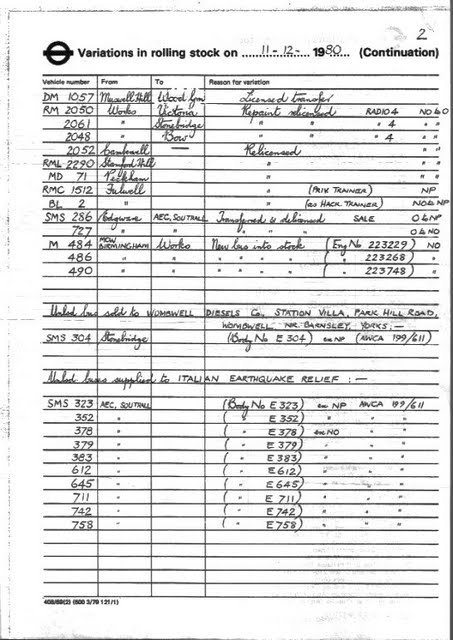 2
Variations in rolling stock on 11-12-1980 (Continuation)
Vehicle number From To Reason for variation
DM 1057 Muswell Hill Wood Grn Licensed transfer
RM 2050 Works Victoria Repaint relicensed RADIO 4 NO & O
2061 " Stonebridge " " " 4 " "
2048 " Bow " " " 4 " "
2052 Camberwell — Relicensed " "
RML 2290 Stamford Hill " " "
MD 71 Peckham " " "
RMC 1512 Fulwell " (PRIV. TRAINER) NP
BL 2 " " (as HACK. TRAINER) NO & NP
SMS 286 Edgware AEC, SOUTHALL Transferred & delicensed SALE O & NP
727 " " " " " O & NO
M 484 MCW BIRMINGHAM Works New bus into stock (Eng No 223229) NO
486 " " " " " " ( " 223268) "
490 " " " " " " ( " 223748) "
Unlad bus sold to WOMBWELL DIESELS Co., STATION VILLA, PARK HILL ROAD,
WOMBWELL, NR. BARNSLEY, YORKS :—
SMS 304 Stonebridge (Body No E 304) ex NP (AWCA 199/611)
Unlad buses supplied to ITALIAN EARTHQUAKE RELIEF :—
SMS 323 AEC, SOUTHALL (Body No E 323) ex NP AWCA 199/611
352 " ( " E 352) " " "
378 " ( " E 378) ex NO " "
379 " ( " E 379) " " "
383 " ( " E 383) " " "
612 " ( " E 612) " " "
645 " ( " E 645) " " "
711 " ( " E 711) " " "
742 " ( " E 742) " " "
758 " ( " E 758) " " "
409/69(2) (500 3/79 121/1)